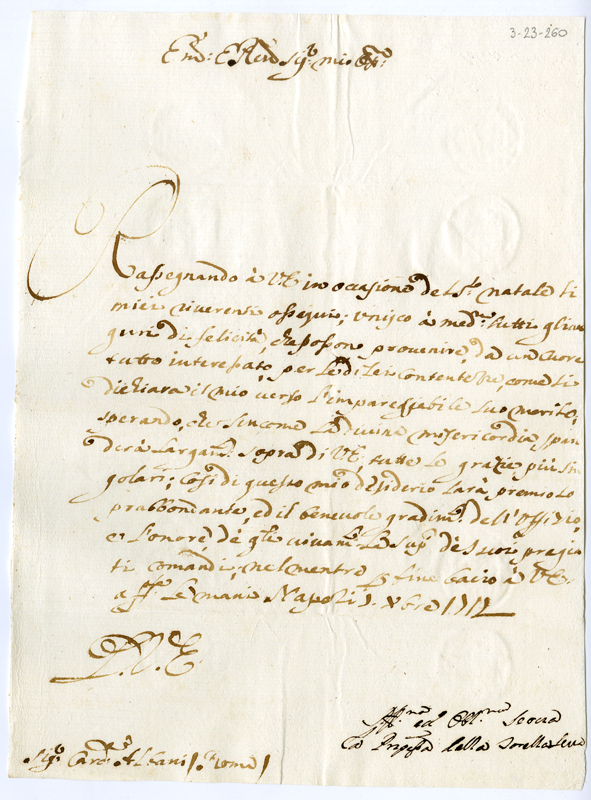 3-23-260
Em.o: E Rev.o Sig.r mio
Rassegnando à V.E. in occasione del S.to natale li
miei riverenti ossequi; unisco à med.mi tutti gli au
guri di felicità, che posson provenire da un cuore
tutto interessato per le di Lei contentezze, come si
dichiara il mio verso l'impareggiabile suo merito;
sperando, che sincome la divina misericordia span
derà largam.te sopra di V.E. tutte le grazie più sin
golari; così di questo mio desiderio sarà premio so
prabbondante, ed il benevole gradim.to dell'offizio,
e l'onore de suoi pregia
ti comandi, nel mentre per fine bacio à V.E.
aff.te le mani Napoli Xbre 1712
D. V. E.
Aff.ma ed Obl.ma
La Prn̄pssa della
Sig.r Card.l Albani / Roma /